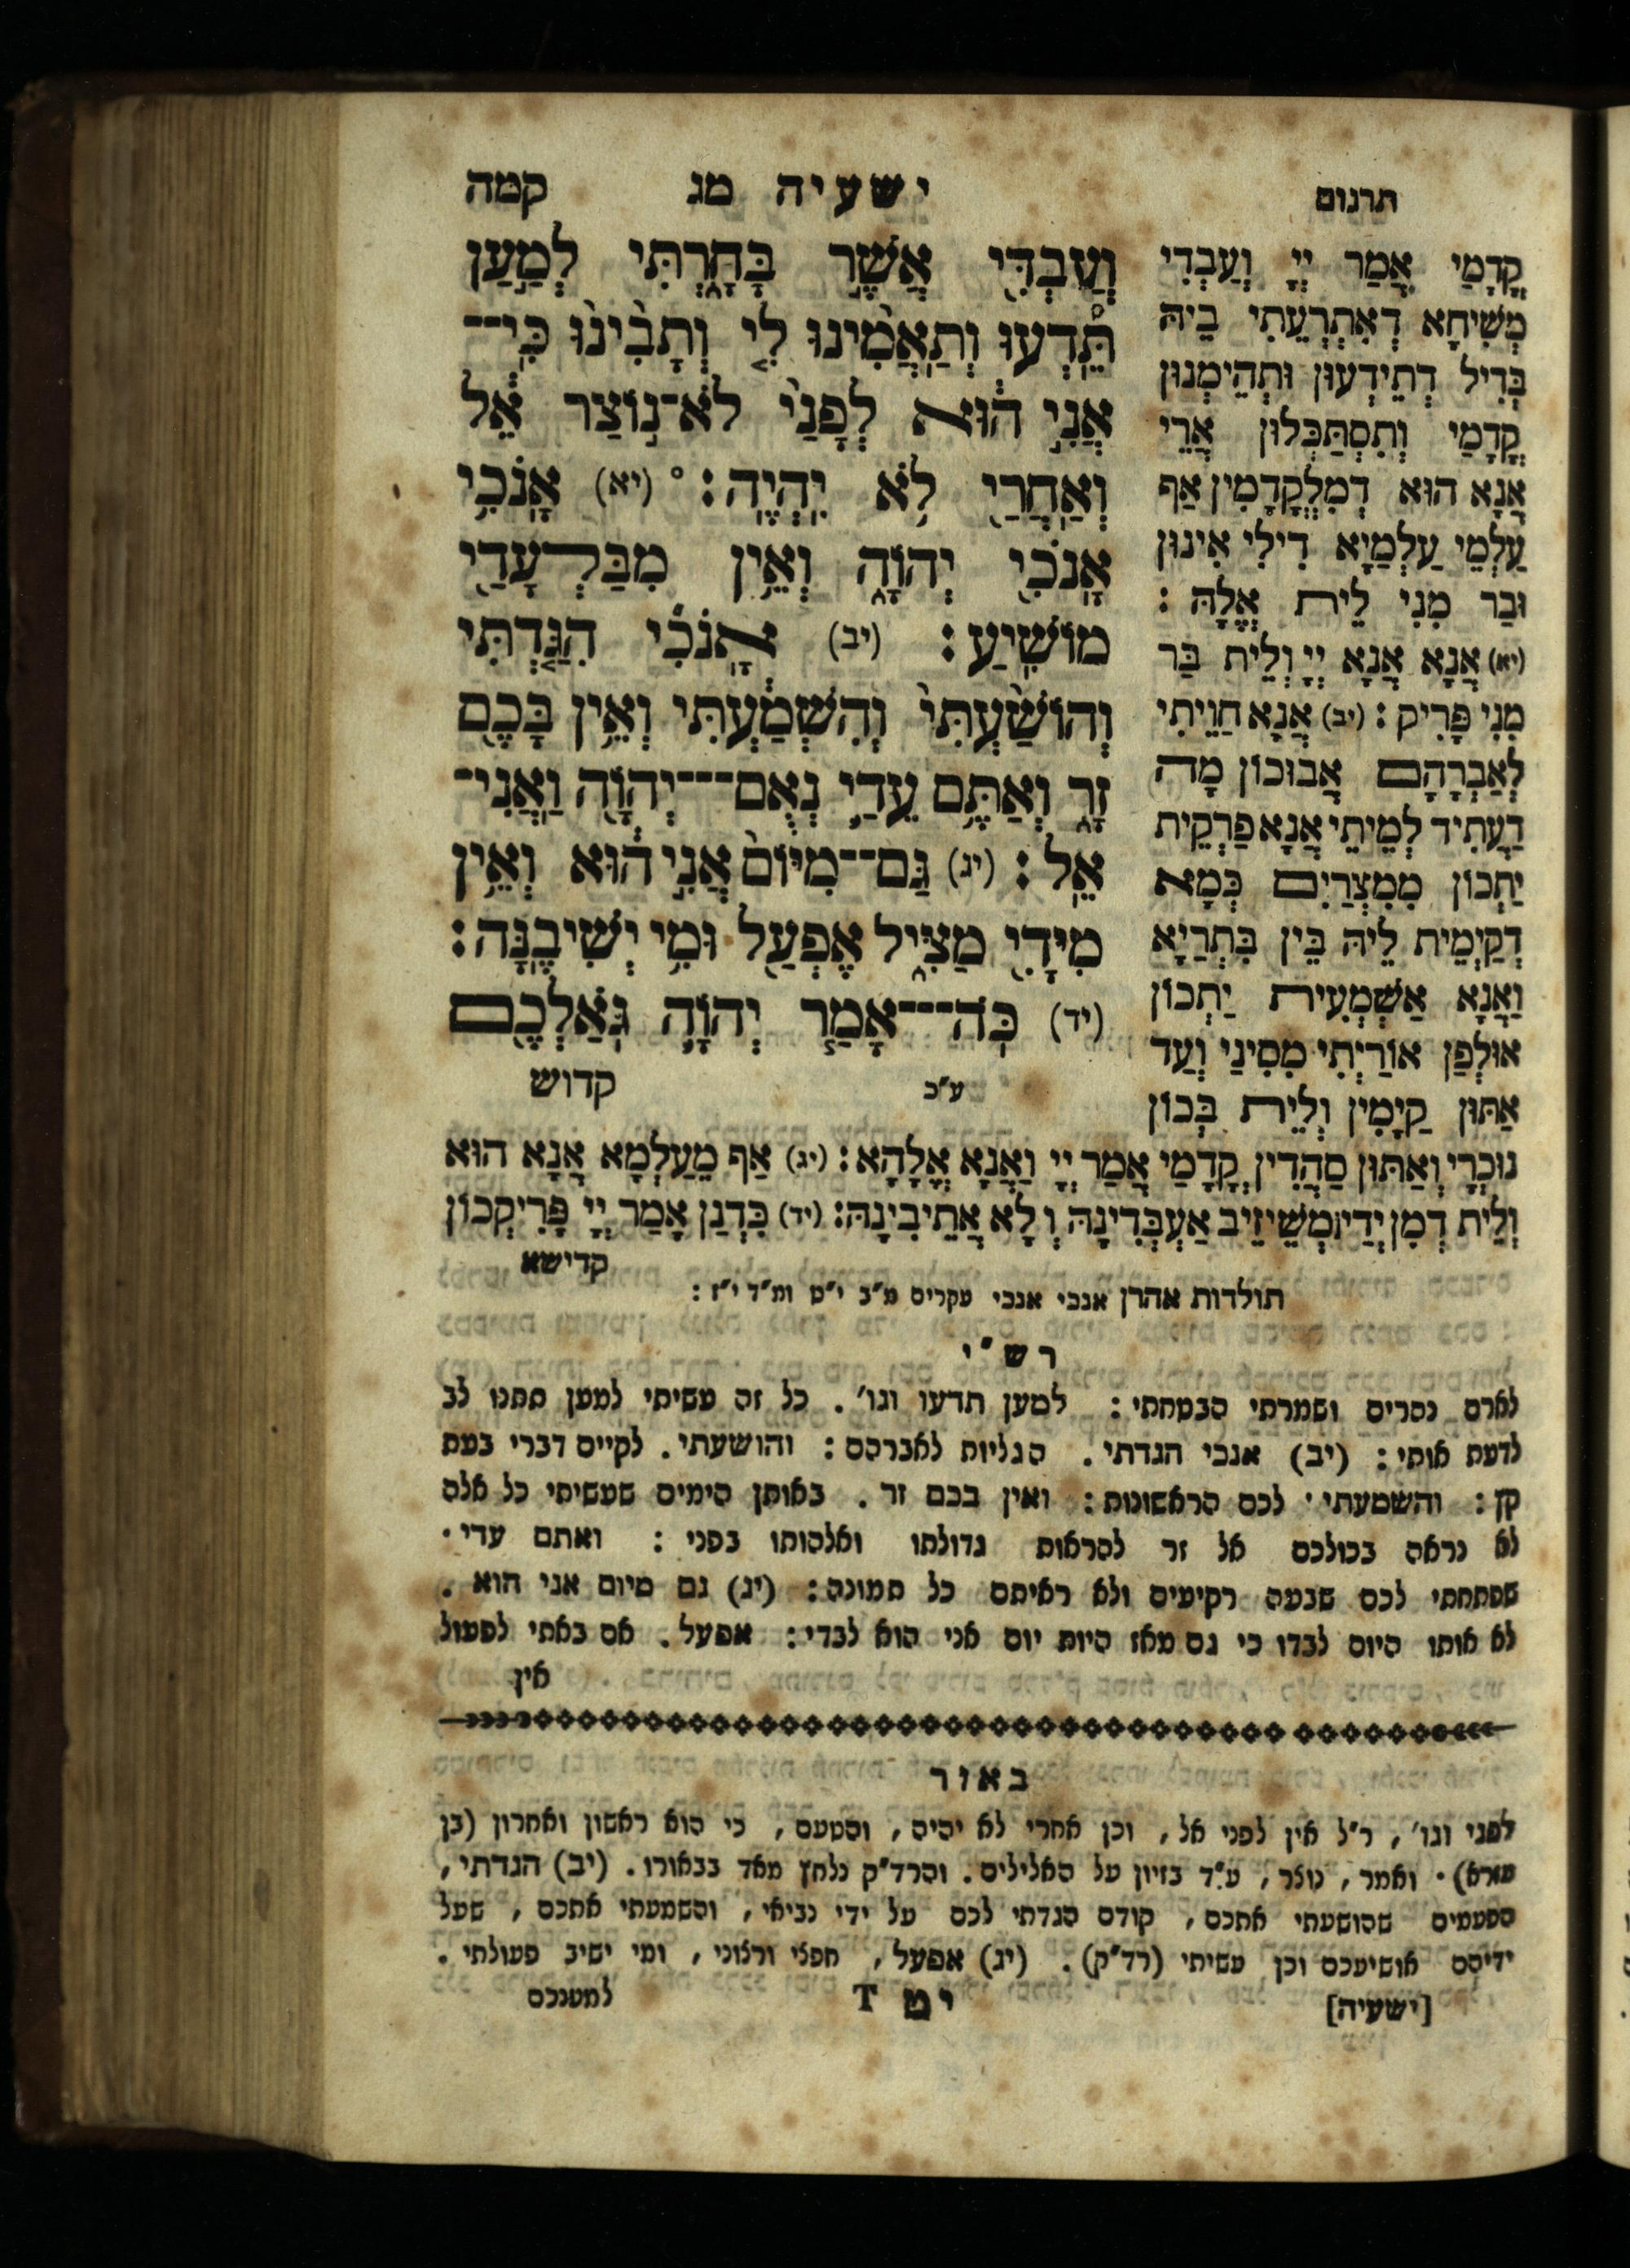 תרגום
ישעיה מג קמה
וְעַבְדִּי אֲשֶׁר בָּחָרְתִּי לְמַעַן
תֵּדְעוּ וְתַאֲמִינוּ לִי וְתָבִינוּ כִּי־
אֲנִי הוּא לְפָנַי לֹא־נוֹצַר אֵל
וְאַחֲרַי לֹא יִהְיֶה: ° (יא) אָנֹכִי
אָנֹכִי יְהוָה וְאֵין מִבַּלְעָדַי
מוֹשִׁיעַ: (יב) אָנֹכִי הִגַּדְתִּי
וְהוֹשַׁעְתִּי וְהִשְׁמַעְתִּי וְאֵין בָּכֶם
זָר וְאַתֶּם עֵדַי נְאֻם־יְהוָה וַאֲנִי־
אֵל: (יג) גַּם־מִיּוֹם אֲנִי הוּא וְאֵין
מִיָּדִי מַצִּיל אֶפְעַל וּמִי יְשִׁיבֶנָּה:
(יד) כֹּה־אָמַר יְהוָה גֹּאַלְכֶם
ע"כ קדוש
קֳדָמַי אֲמַר יְיָ וְעַבְדִי
מְשִׁיחָא דְאִתְרְעֵתִי בֵיהּ
בְּדִיל דְתֵידְעוּן וּתְהֵימְנוּן
קֳדָמַי וְתִסְתַּכְּלוּן אֲרֵי
אֲנָא הוּא דְמִלְּקַדְמִין אַף
עַלְמֵי עַלְמַיָא דִילִי אִינוּן
וּבַר מִנִי לֵית אֱלָהּ:
(יא) אֲנָא אֲנָא יְיָ וְלֵית בַּר
מִנִי פָּרִיק: (יב) אֲנָא חַוֵיתִי
לְאַבְרָהָם אֲבוּכוֹן מָה
דַעֲתִיד לְמֵיתֵי אֲנָא פַרְקֵית
יַתְכוֹן מִמִצְרַיִם כְּמָא
דְקַיְמֵית לֵיהּ בֵּין בִּתְרַיָא
וַאֲנָא אַשְׁמְעִית יַתְכוֹן
אוּלְפַן אוֹרַיְתִי מִסִינַי וְעַד
אַתּוּן קַיָמִין וְלֵית בְּכוֹן
נוּכְרָי וְאַתּוּן סַהֲדִין קֳדָמַי אֲמַר יְיָ וַאֲנָא אֱלָהָא: (יג) אַף מֵעַלְמָא אֲנָא הוּא
וְלֵית דְמִן יְדַי מְשֵׁיזֵיב אַעְבְּדִינָהּ וְלָא אֲתֵיבִינָהּ: (יד) כִּדְנַן אָמַר יְיָ פָּרִיקְכוֹן
קדישא
תולדות אהרן אנכי אנכי עקרים מ"ב י"ט ומ"ד י"ז:
רש"י
לארם נסרים ושמרתי הבטחתי: למען תדעו וגו'. כל זה עשיתי למען תתנו לב
לדעת אותי: (יב) אנכי הגדתי. הגליות לאברהם: והושעתי. לקיים דברי בעת
קן: והשמעתי. לכם הראשונות: ואין בכם זר. באותן הימים שעשיתי כל אלה
לא נראה בכולכם אל זר להראות גדולתו ואלהותו בפני: ואתם עדי.
שפתחתי לכם שבעה רקיעים ולא ראיתם כל תמונה: (יג) גם מיום אני הוא.
לא אותו היום לבדו כי גם מאז היות יום אני הוא לבדי: אפעל. אם באתי לפעול
אין
באור
לפני וגו', ר"ל אין לפני אל, וכן אחרי לא יהיה, והטעם, כי הוא ראשון ואחרון (בן
עזרא). ואמר, נוצר, ע"ד בזיון על האלילים. והרד"ק נלחץ מאד בבאורו. (יב) הגדתי,
הפעמים שהושעתי אתכם, קודם הגדתי לכם על ידי נביאי, והשמעתי אתכם, שעל
ידיהם אושיעכם וכן עשיתי (רד"ק). (יג) אפעל, חפצי ורצוני, ומי ישיב פעולתי.
[ישעיה] יט T למענכם